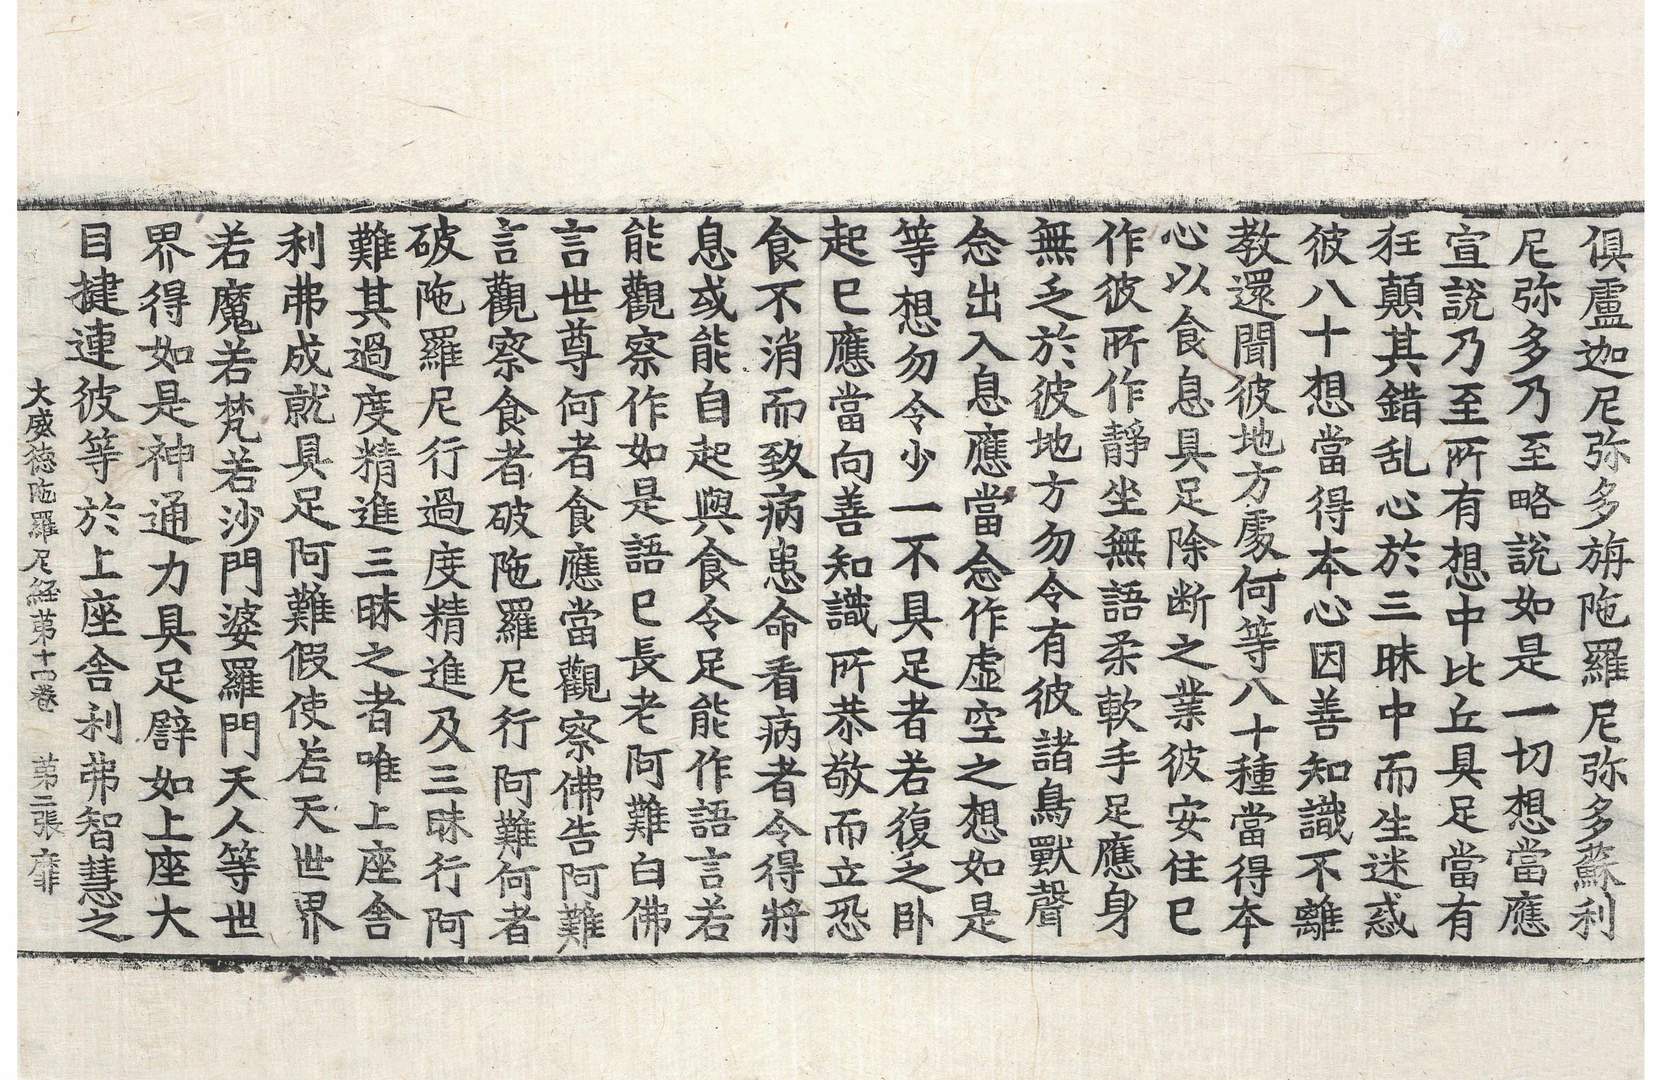 俱盧迦尼弥多旃陁羅尼弥多蘇利
尼弥多乃至略說如是一切想當應
宣說乃至所有想中比丘具足當有
狂顛其錯乱心於三昧中而生迷惑
彼八十想當得本心因善知識不離
教還聞彼地方處何等八十種當得本
心以食息具足除断之業彼安住已
作彼所作靜坐無語柔軟手足應身
無乏於彼地方勿令有彼諸鳥獸聲
念出入息應當念作虛空之想如是
等想勿令少一不具足者若復乏卧
起已應當向善知識所恭敬而立恐
食不消而致病患命看病者令得將
息或能自起與食令足能作語言若
能觀察作如是語已長老阿難白佛
言世尊何者食應當觀察佛告阿難
言觀察食者破陁羅尼行阿難何者
破陁羅尼行過度精進及三昧行阿
難其過度精進三昧之者唯上座舍
利弗成就具足阿難假使若天世界
若魔若梵若沙門婆羅門天人等世
界得如是神通力具足譬如上座大
目揵連彼等於上座舍利弗智慧之
大威德陁羅尼経第十四卷 第二張 靡